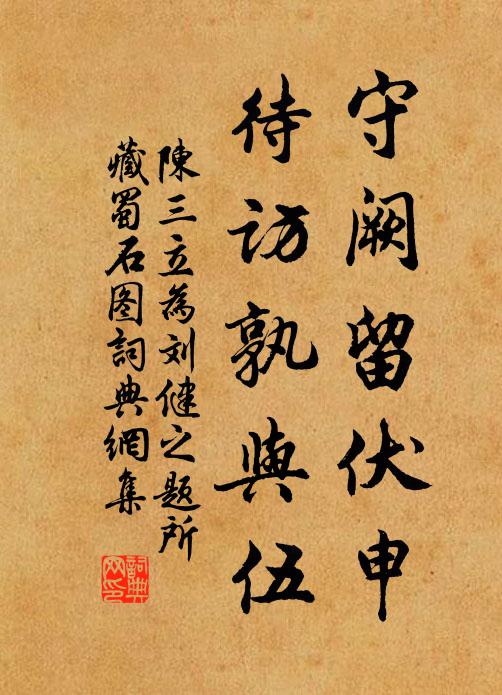 守阙留伏申
待访孰與伍
陳三立為刘健之题所
藏蜀石图詞典網集
詞典网印